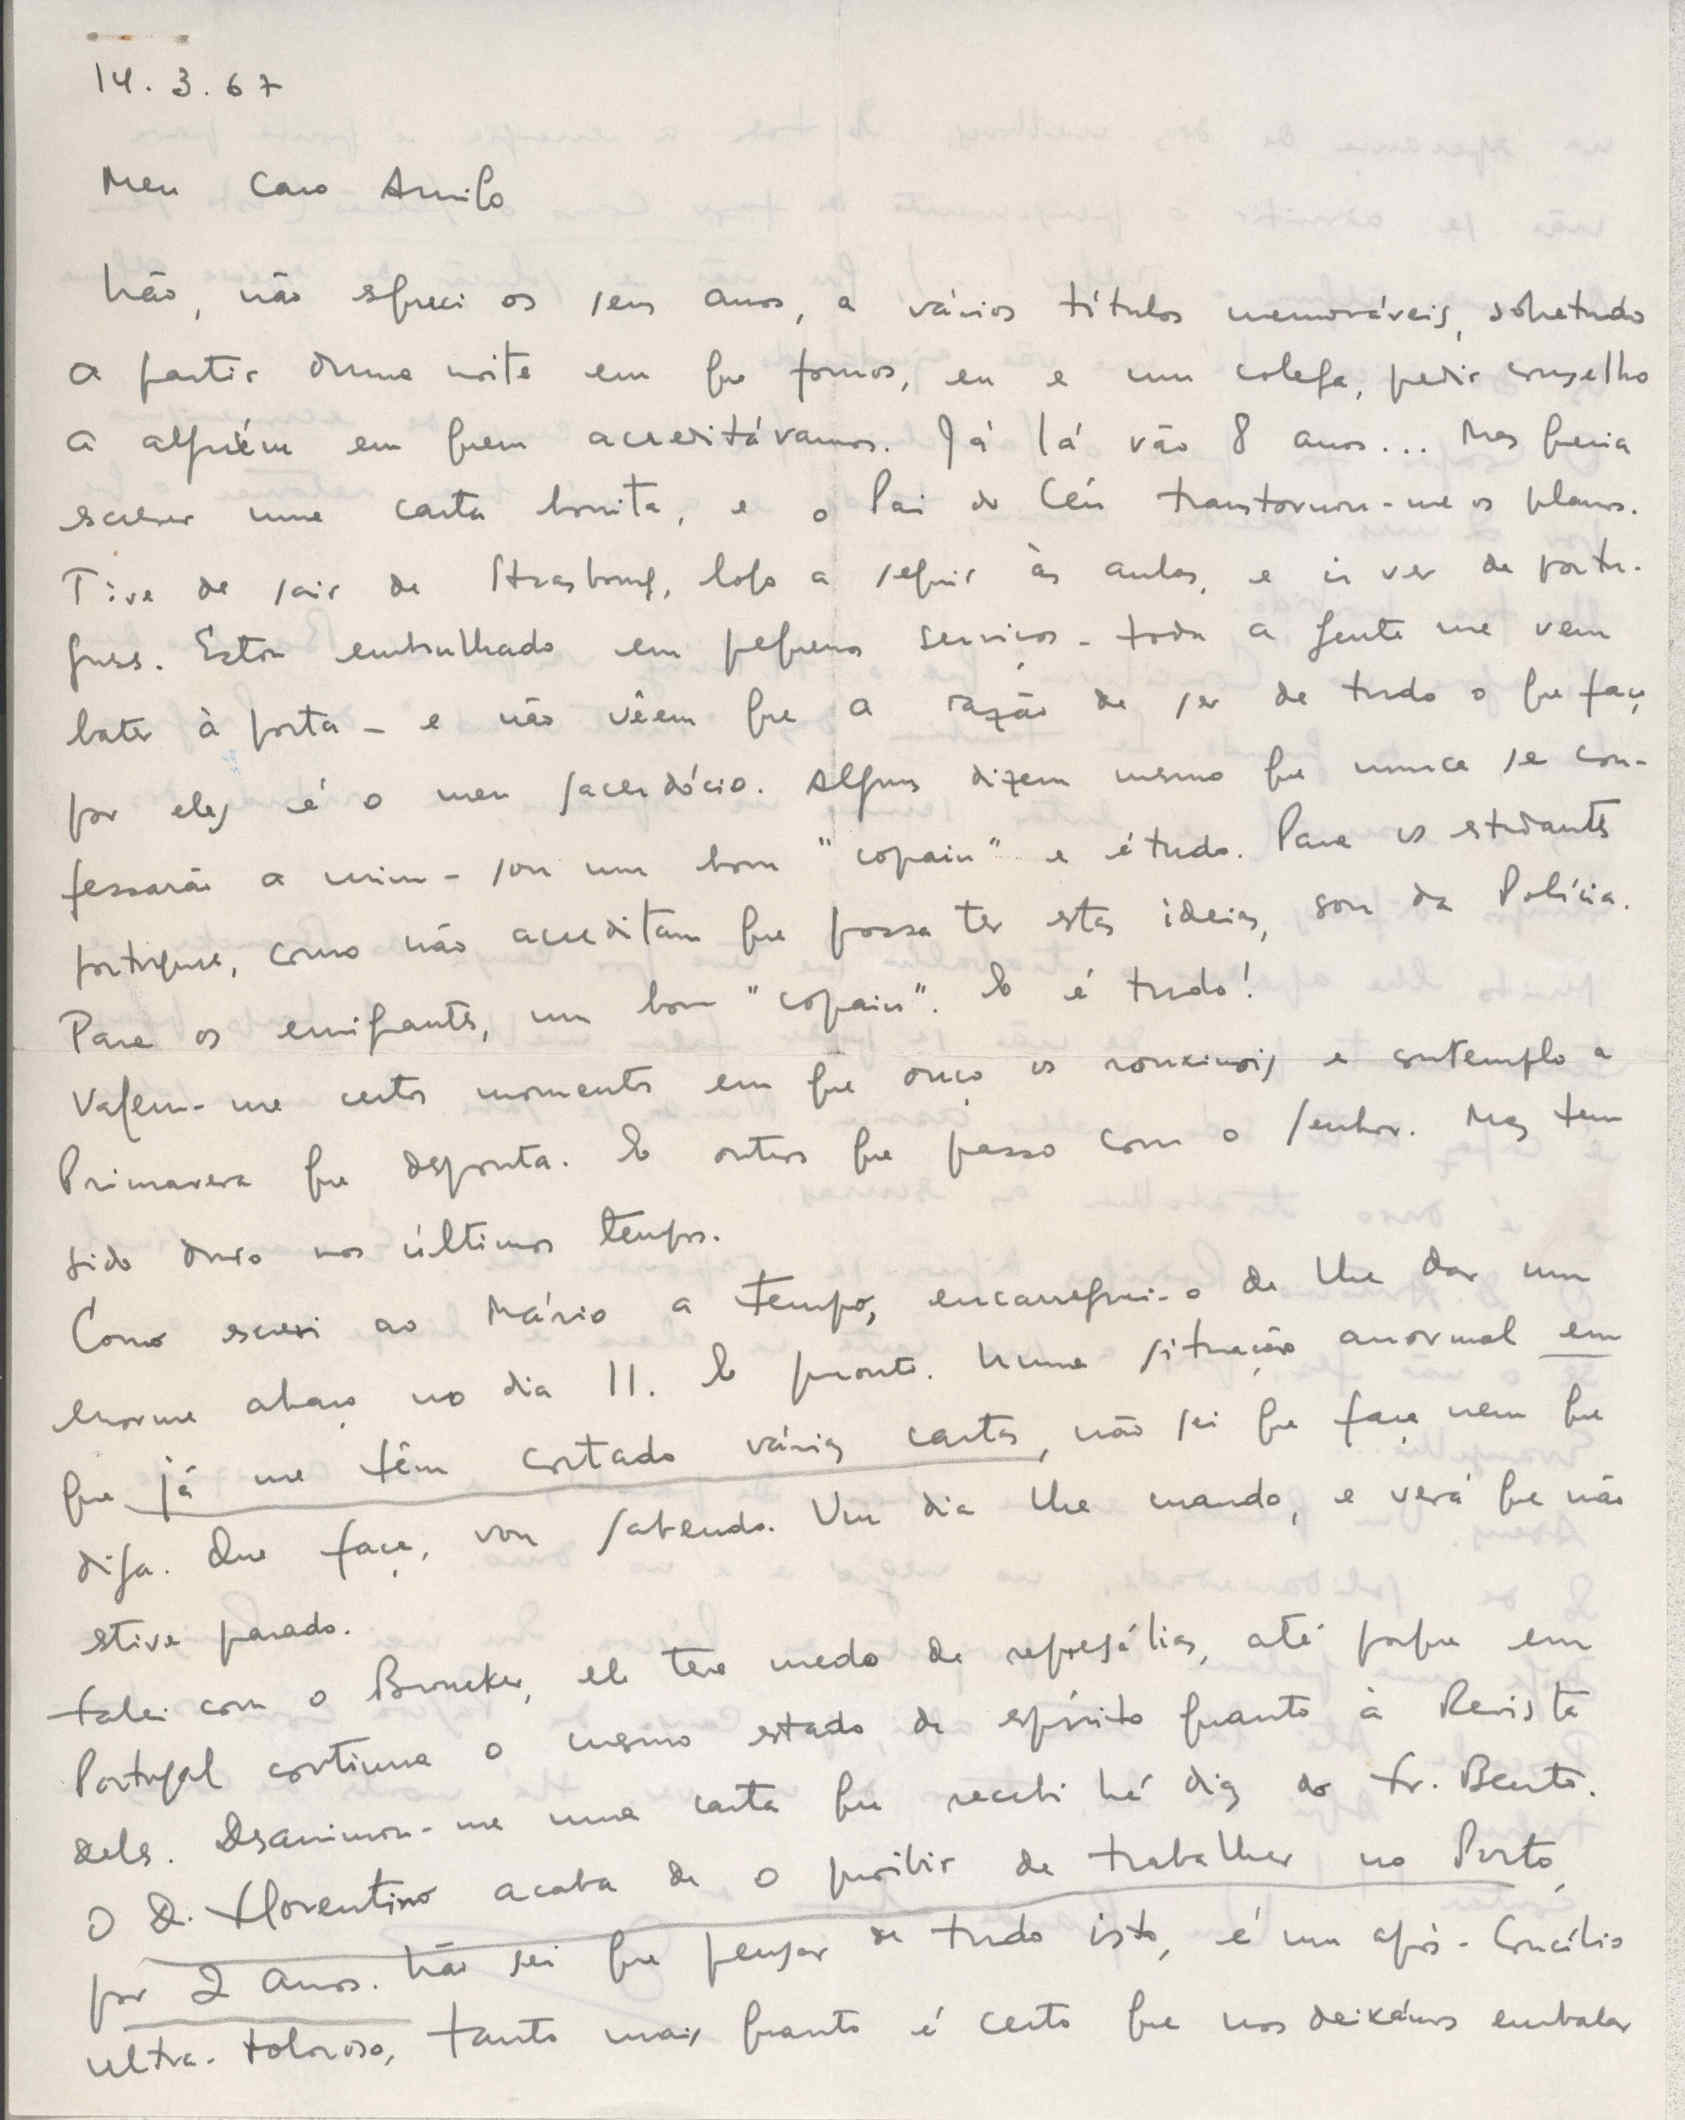 14.3.67
Meu Caro Amilo
Não, não esqueci os seus anos, a vários títulos memoráveis, sobretudo
a partir duma noite em que fomos, eu e um colega, pedir conselho
a alguém em quem acreditávamos. Já lá vão 8 anos... Mas queria
escrever uma carta bonita, e o Pai do Céu transtornou-me os planos.
Tive de sair de Strasbourg, logo a seguir às aulas, e ir ver de portu-
gueses. Estou embrulhado em pequenos serviços - toda a gente me vem
bater à porta - e não vêem que a razão de ser de tudo o que faço
por eles é o meu sacerdócio. Alguns dizem mesmo que nunca se con-
fessarão a mim - sou um bom "copain" e é tudo. Para os estudantes
portugueses, como não acreditam que possa ter estas ideias, sou da Polícia.
Para os emigrantes, um bom "copain". E é tudo!
Valem-me certos momentos em que ouço os rouxinois e contemplo a
Primavera que desponta. E outros que passo com o Senhor. Mas tem
sido duro nos últimos tempos.
Como escrevi ao Mário a tempo, encarreguei-o de lhe dar um
enorme abraço no dia 11. E pronto. Numa situação anormal em
que já me têm cortado várias cartas, não sei que faça nem que
diga. Que faça, vou sabendo. Um dia lhe mando, e verá que não
estive parado.
Falei com o ele teve medo de represálias, até porque em
Portugal continua o mesmo estado de espírito quanto à Revista
deles. Desanimou-me uma carta que recebi há dias do Fr. Bento.
O D. Florentino acaba de o proibir de trabalhar no Porto,
por 2 anos. Não sei que pensar de tudo isto, é um após-Concílio
ultra-doloroso, tanto mais quanto é certo que nos deixámos embalar